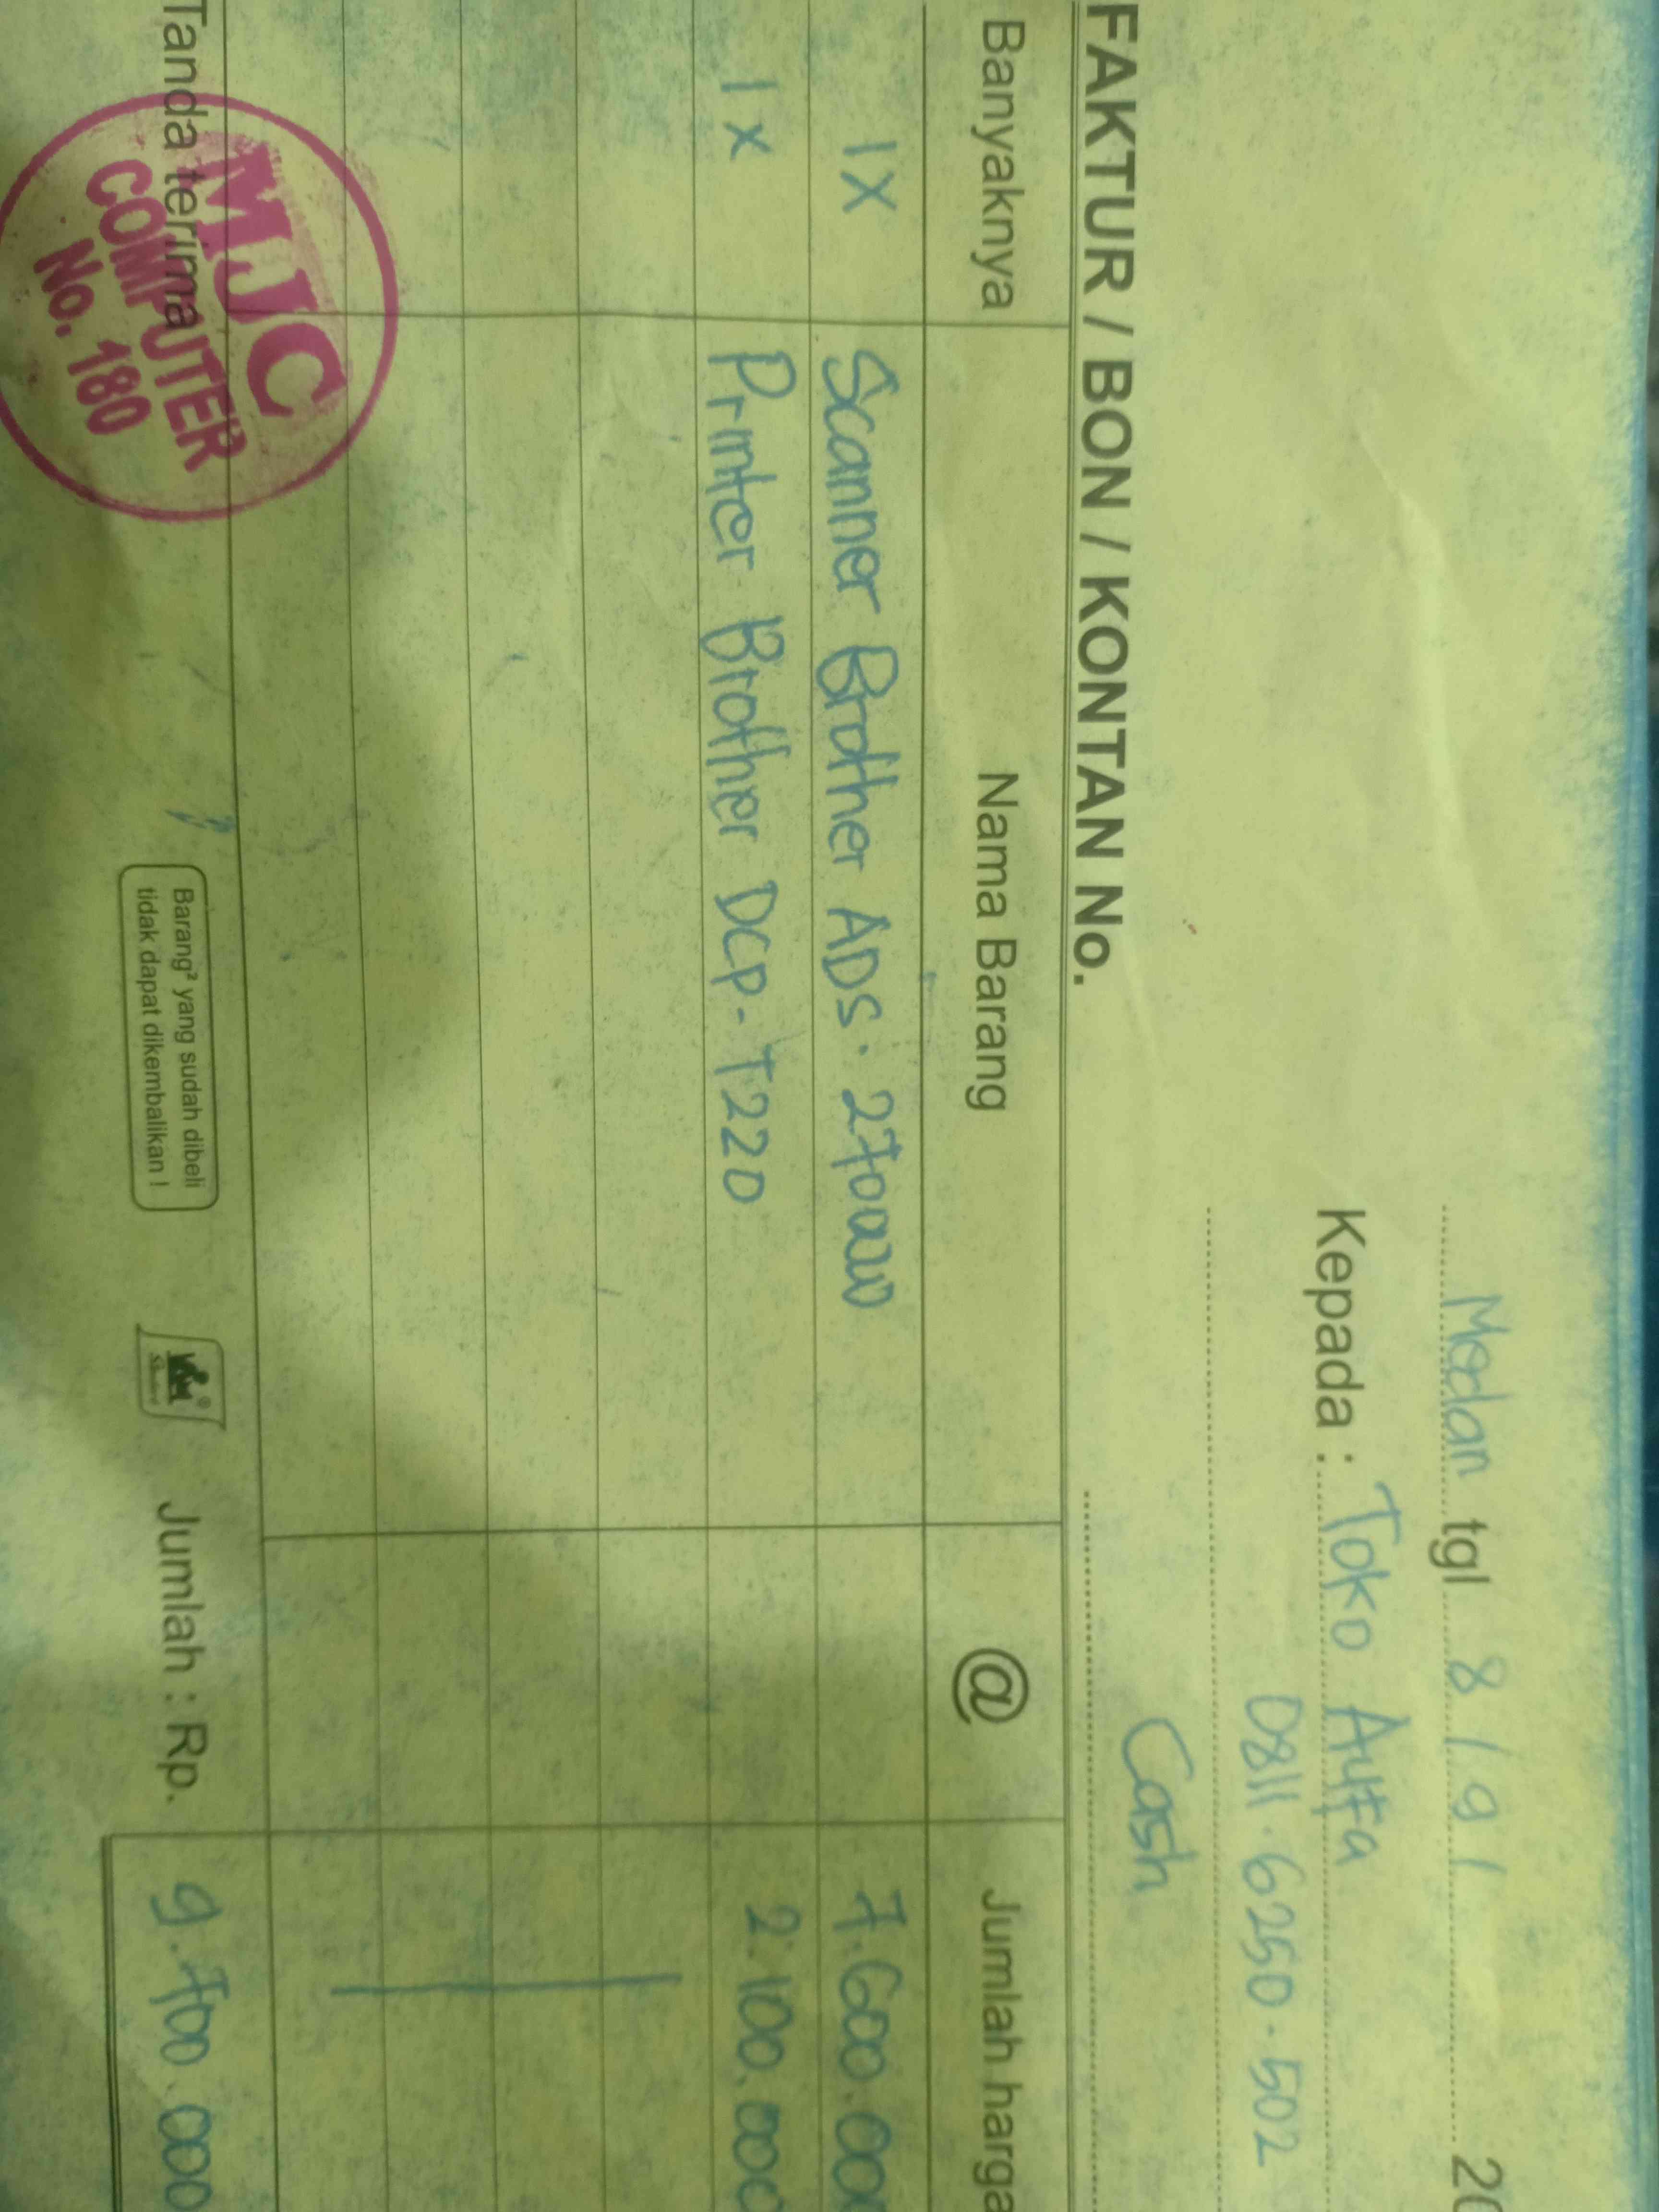 Medan tgl 8/9/ 20
Kepada : Toko Auffa
0811.6250.502
FAKTUR / BON / KONTAN No.
Cash
Banyaknya Nama Barang @ Jumlah harga
1x Scanner Brother ADS. 2700W 7.600.00
1x Printer Brother DCP-T220 2.100.000
Tanda terima
Barang² yang sudah dibeli
tidak dapat dikembalikan !
Jumlah : Rp. 9.700.000
MJC
COMPUTER
No. 180